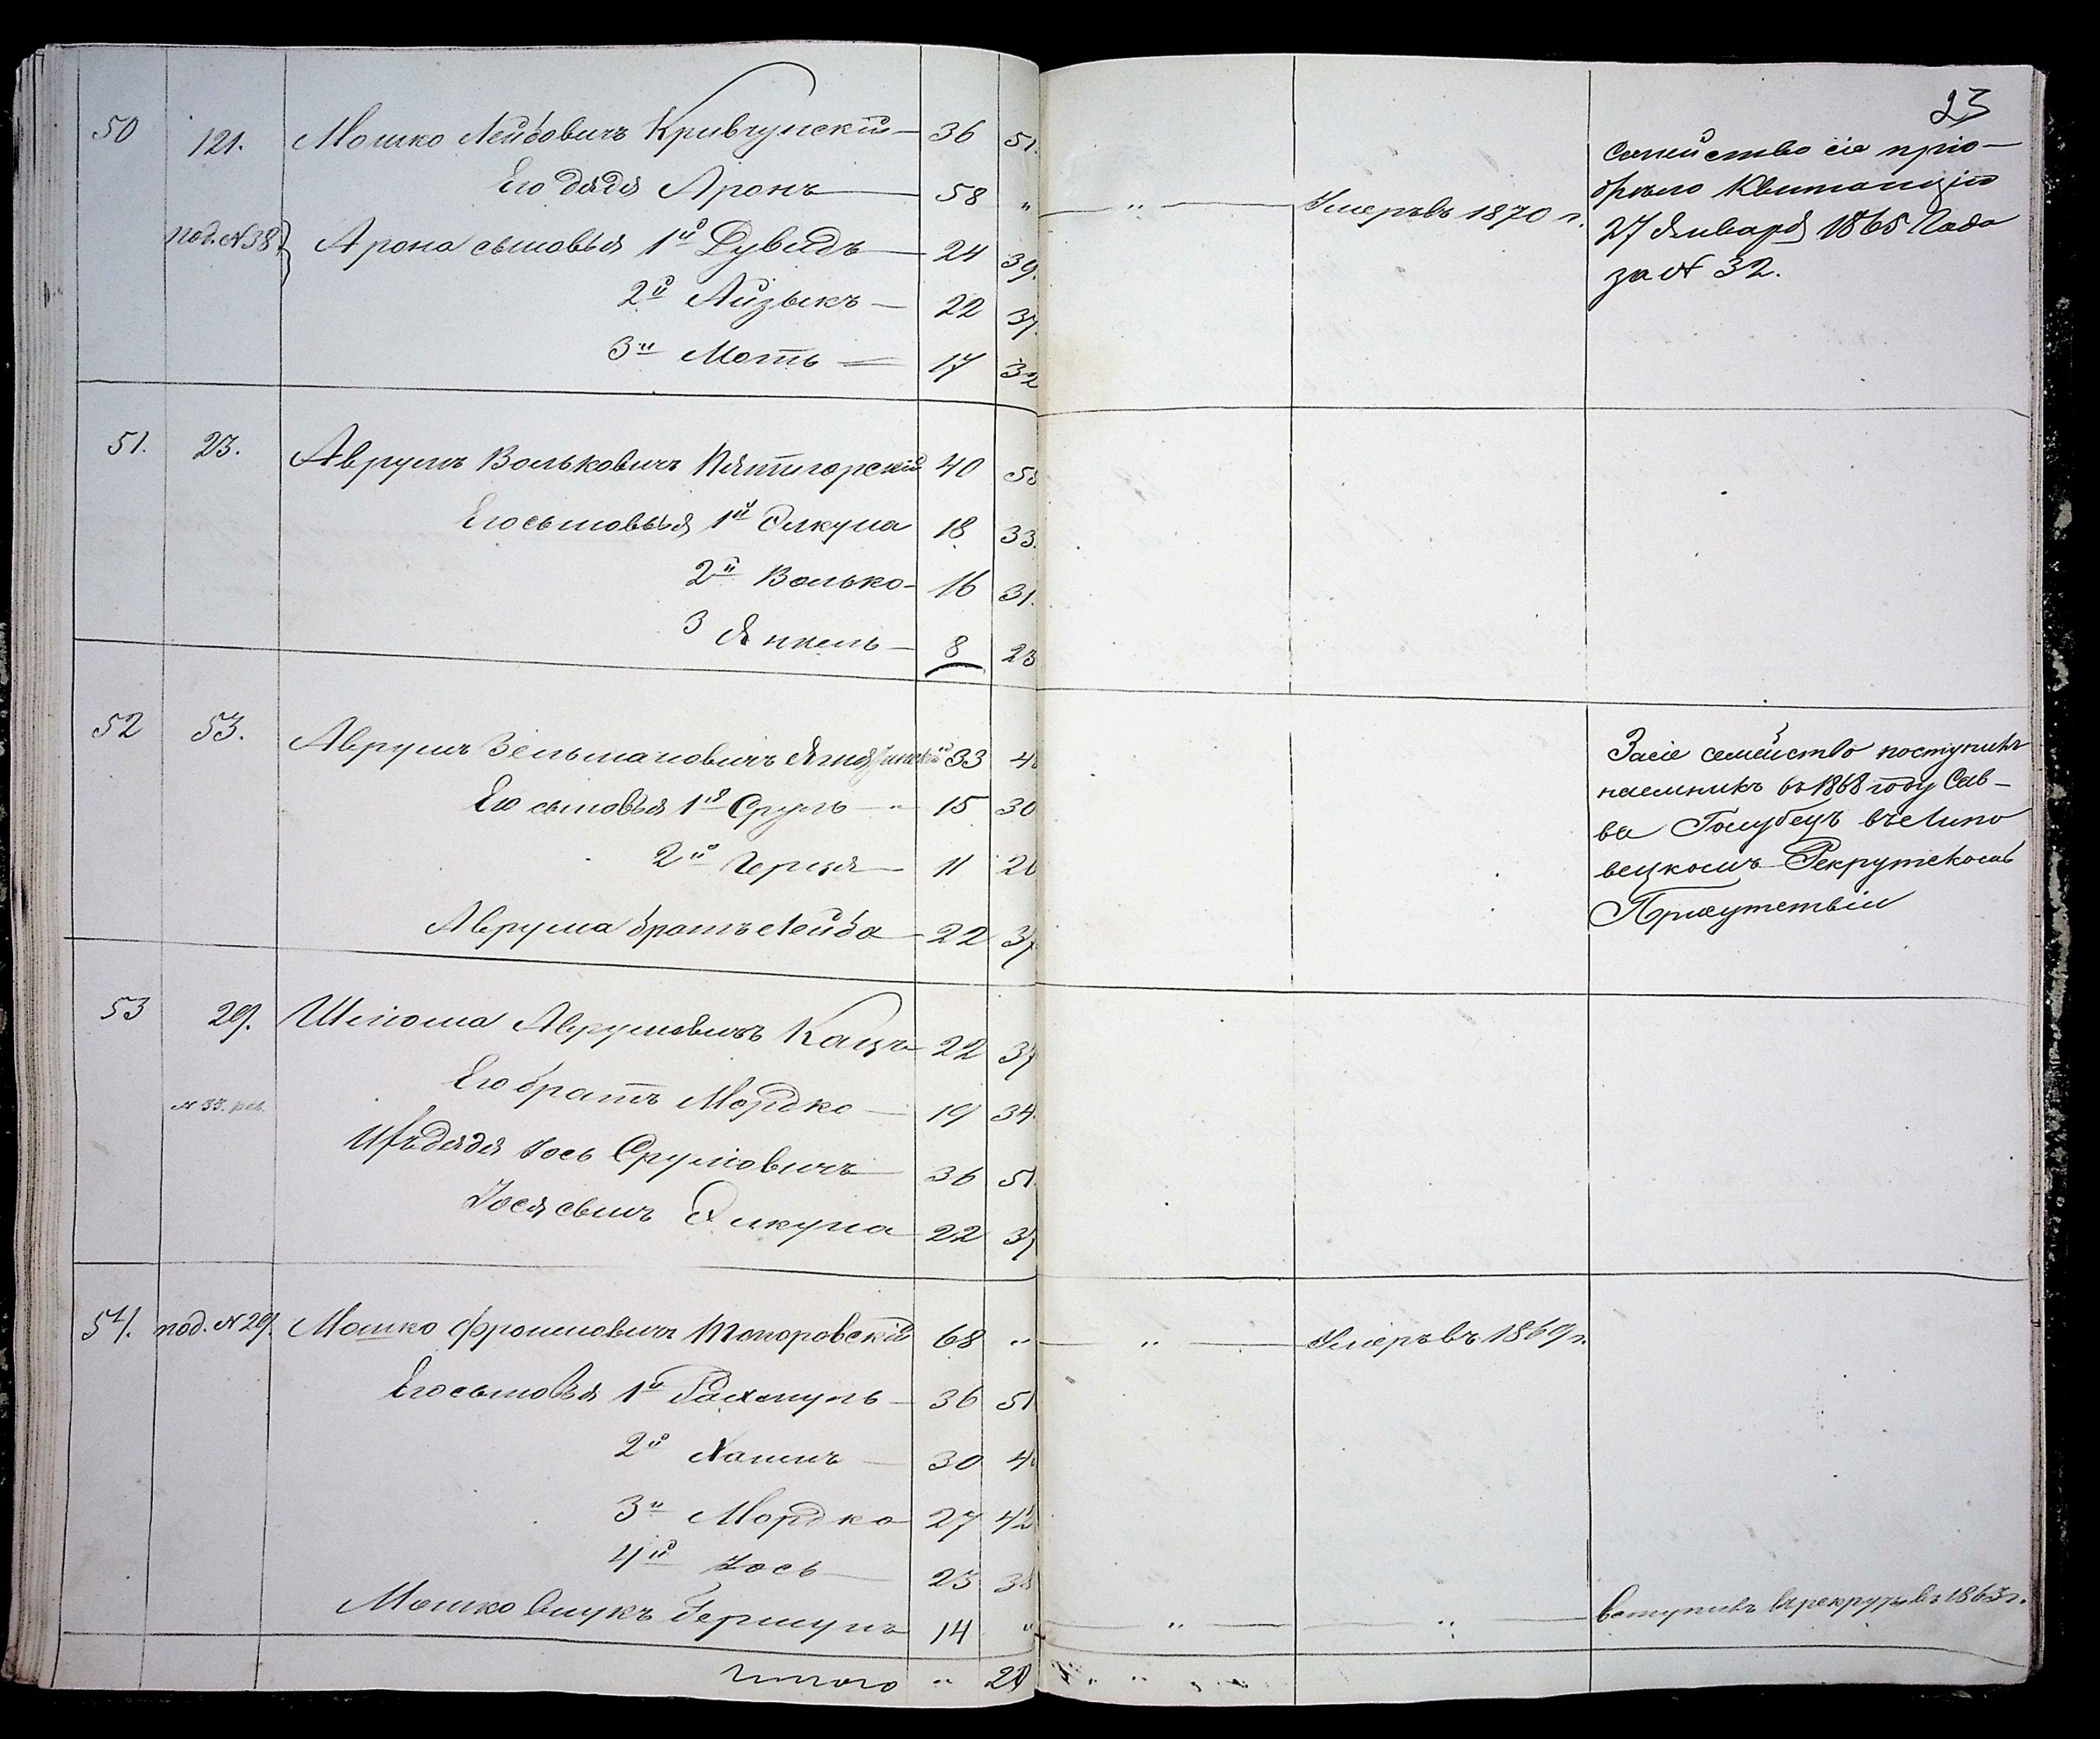 23
50 121. Мошко Лейбовичъ Кривчунскій 36 51.
Его дядя Аронъ 58 " " Умеръ въ 1870 г.
под. № 38 Арона сыновья 1й Дувидъ 24 39.
2й Айзыкъ 22 37.
3й Моть 17 32
Семейство сіе пріо-
брѣло Квитанцію
27 Января 1865 Года
за № 32.
51. 23. Аврумъ Вольковичъ Пятигорскій 40 55
Его сыновья 1й Элкуна 18 33.
2й Волько 16 31.
3 Янкель 8 23
52 53. Аврумъ Зельмановичъ 33 48
Его сыновья 1й Сруль " 15 30
2й Герця 11 26
Аврума братъ Лейба 22 37
За сіе семейство поступилъ
наемникъ въ 1868 году Сав-
ва Голубецъ въ Липо
вецкомъ Рекрутскомъ
Присутствіи
53 29. Шлёма Аврумовичъ Кацъ 22 37
№ 33. рев. Его братъ Мордко 19 34.
Ихъ дядя Іось Срулёвичъ 36 51.
Іося сынъ Элкуна 22 37
54. под. № 29. Мошко Фроимовичъ Топоровскій 68 " " Умеръ въ 1869 г.
Его сыновья 1й Рахмуль 36 51
2й Хаимъ 30 4
3й Мордко 27 42
4й Іось 23 38
Мошко внукъ Гершунъ 14 " " " Поступилъ въ рекруты въ 1863 г.
Итого " 21 " "